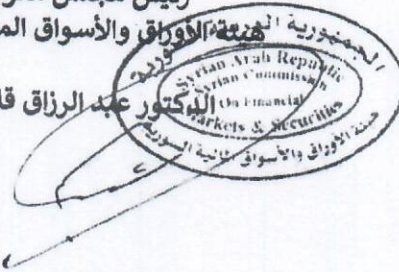 رئيس مجلس
هيئة الأوراق والأسواق
الدكتور عبد الرزاق
الجمهورية العربية السورية
Syrian Arab Republic
Syrian Commission
On Financial
Markets & Securities
هيئة الأوراق والأسواق المالية السورية